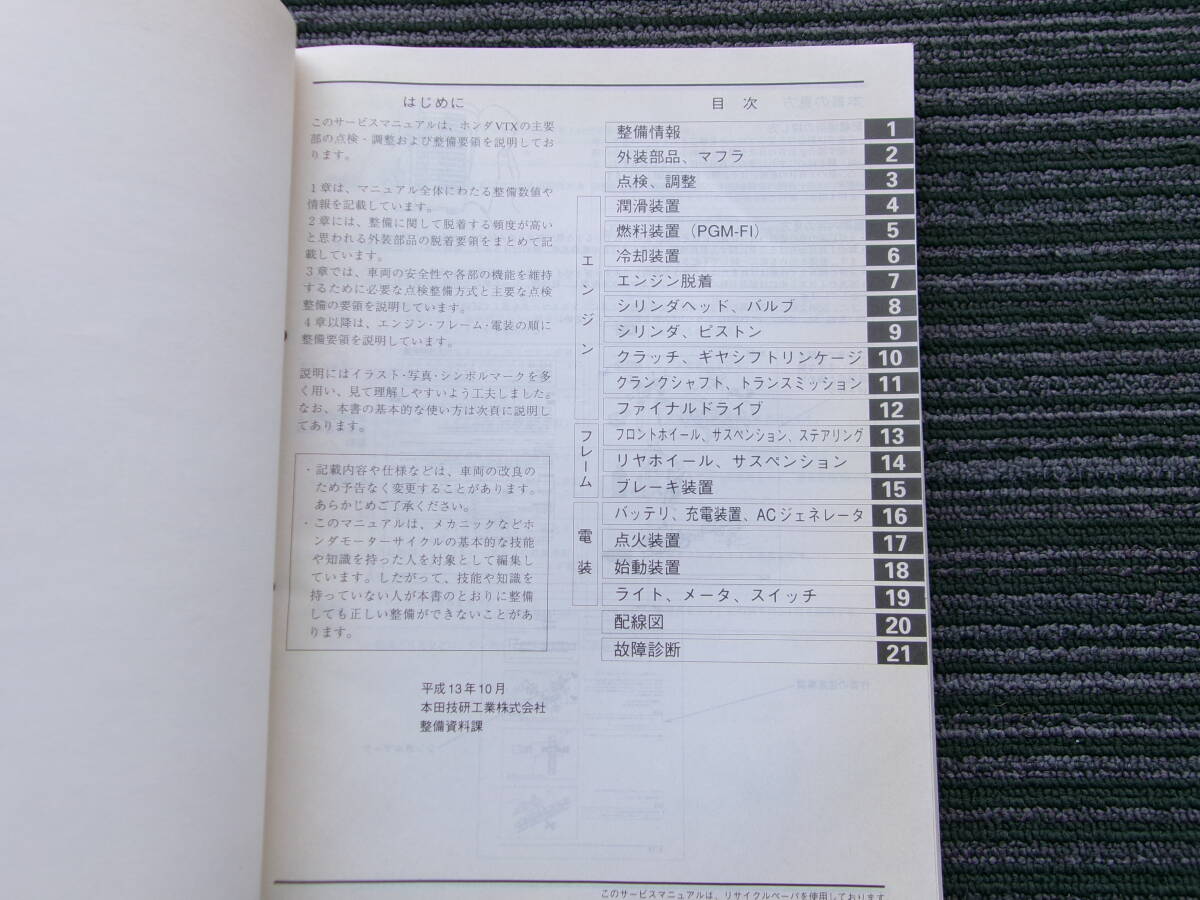 はじめに
このサービスマニュアルは、ホンダVTXの主要
部の点検・調整および整備要領を説明してお
ります。
1章は、マニュアル全体にわたる整備数値や
情報を記載しています。
2章には、整備に関して脱着する頻度が高い
と思われる外装部品の脱着要領をまとめて記
載しています。
3章では、車両の安全性や各部の機能を維持
するために必要な点検整備方式と主要な点検
整備の要領を説明しています。
4章以降は、エンジン・フレーム・電装の順に
整備要領を説明しています。
説明にはイラスト・写真・シンボルマークを多
く用い、見て理解しやすいよう工夫しました。
なお、本書の基本的な使い方は次頁に説明し
てあります。
・記載内容や仕様などは、車両の改良の
ため予告なく変更することがあります。
あらかじめご了承ください。
・このマニュアルは、メカニックなどホ
ンダモーターサイクルの基本的な技能
や知識を持った人を対象として編集し
ています。したがって、技能や知識を
持っていない人が本書のとおりに整備
しても正しい整備ができないことがあ
ります。
平成13年10月
本田技研工業株式会社
整備資料課
目 次
整備情報 1
外装部品、マフラ 2
点検、調整 3
エンジン
潤滑装置 4
燃料装置(PGM-FI) 5
冷却装置 6
エンジン脱着 7
シリンダヘッド、バルブ 8
シリンダ、ピストン 9
クラッチ、ギヤシフトリンケージ 10
クランクシャフト、トランスミッション 11
ファイナルドライブ 12
フレーム
フロントホイール、サスペンション、ステアリング 13
リヤホイール、サスペンション 14
ブレーキ装置 15
電装
バッテリ、充電装置、ACジェネレータ 16
点火装置 17
始動装置 18
ライト、メータ、スイッチ 19
配線図 20
故障診断 21
このサービスマニュアルは、リサイクルペーパを使用しております